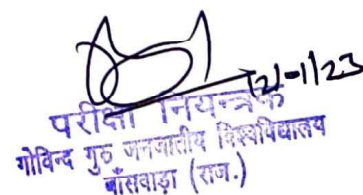 12/-1/23
परीक्षा नियन्त्रक
गोविन्द गुरु जनजातीय विश्वविद्यालय
बाँसवाड़ा (राज.)